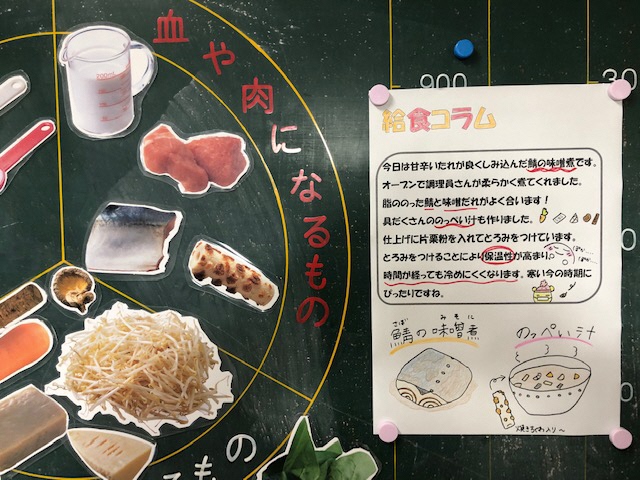 血や肉になるもの
もの
900
30
0
0
給食コラム
今日は甘辛いたれが良くしみ込んだ鯖の味噌煮です。
オーブンで調理員さんが柔らかく煮てくれました。
脂ののった鯖と味噌だれがよく合います！
具だくさんののっぺい汁も作りました。
仕上げに片栗粉を入れてとろみをつけています。
とろみをつけることにより保温性が高まり、
時間が経っても冷めにくくなります。寒い今の時期に
ぴったりですね。
さば みそに
鯖の味噌煮
のっぺい汁
焼きちくわ入り〜